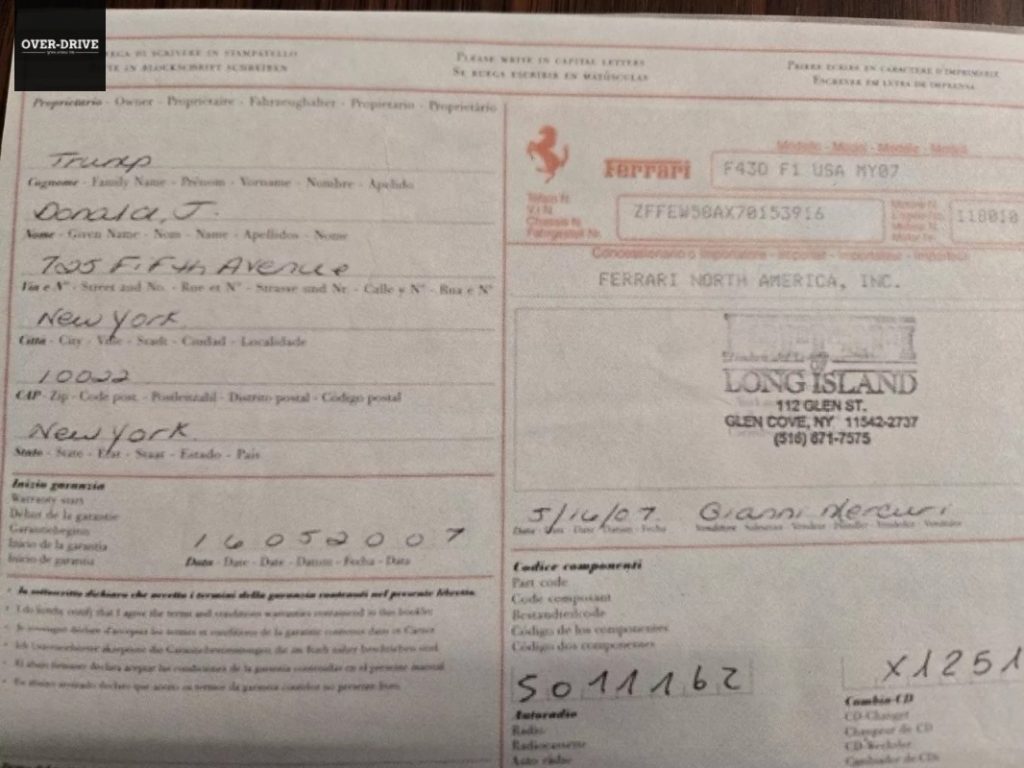 OVER-DRIVE
DI SCRIVERE IN STAMPATELLO
IN BLOCKSCHRIFT SCHREIBEN
PLEASE WRITE IN CAPITAL LETTERS
SE RUEGA ESCRIBIR EN MAYÚSCULAS
PRIÈRE ÉCRIRE EN CARACTÈRE D'IMPRIMERIE
ESCREVER EM LETRA DE IMPRENSA
Proprietario - Owner - Propriétaire - Fahrzeughalter - Propietario - Proprietário
Trump
Cognome - Family Name - Prénom - Vorname - Nombre - Apelido
Donald, J.
Nome - Given Name - Nom - Name - Apellidos - Nome
725 Fifth Avenue
Via e N° - Street and No. - Rue et N° - Strasse und Nr. - Calle y N° - Rua e N°
New York
Città - City - Ville - Stadt - Ciudad - Localidade
10022
CAP - Zip - Code post. - Postleinzahl - Distrito postal - Código postal
New York
Stato - State - Etat - Staat - Estado - Pais
Inizio garanzia
Warranty start
Début de la garantie
Garantiebeginn
Inicio de la garantía
Início de garantia
16052007
Data - Date - Date - Datum - Fecha - Data
In sottoscritto dichiaro che accetto i termini della garanzia contenuti nel presente libretto.
Ferrari
Modello - Model - Modèle - Modell
F430 F1 USA MY07
Telaio N.
V.I.N.
Chassis N.
Fahrgestell Nr.
ZFFEW58AX70153916
Motore N.
Engine No.
Moteur N.
Motor Nr.
118010
Concessionario o Importatore - Importer - Importateur - Importeur
FERRARI NORTH AMERICA, INC.
LONG ISLAND
112 GLEN ST.
GLEN COVE, NY 11542-2737
(516) 671-7575
5/16/07 Gianni Mercuri
Data - Date - Date - Datum - Fecha
Codice componenti
Part code
Code composant
Bestandteilcode
Código de los componentes
Código dos componentes
5011162
X1251
Autoradio
Radio
Radiocassette
Auto rádio
Combin-CD
CD-Changer
Changeur de CD
CD-Wechsler
Cambiador de CDs